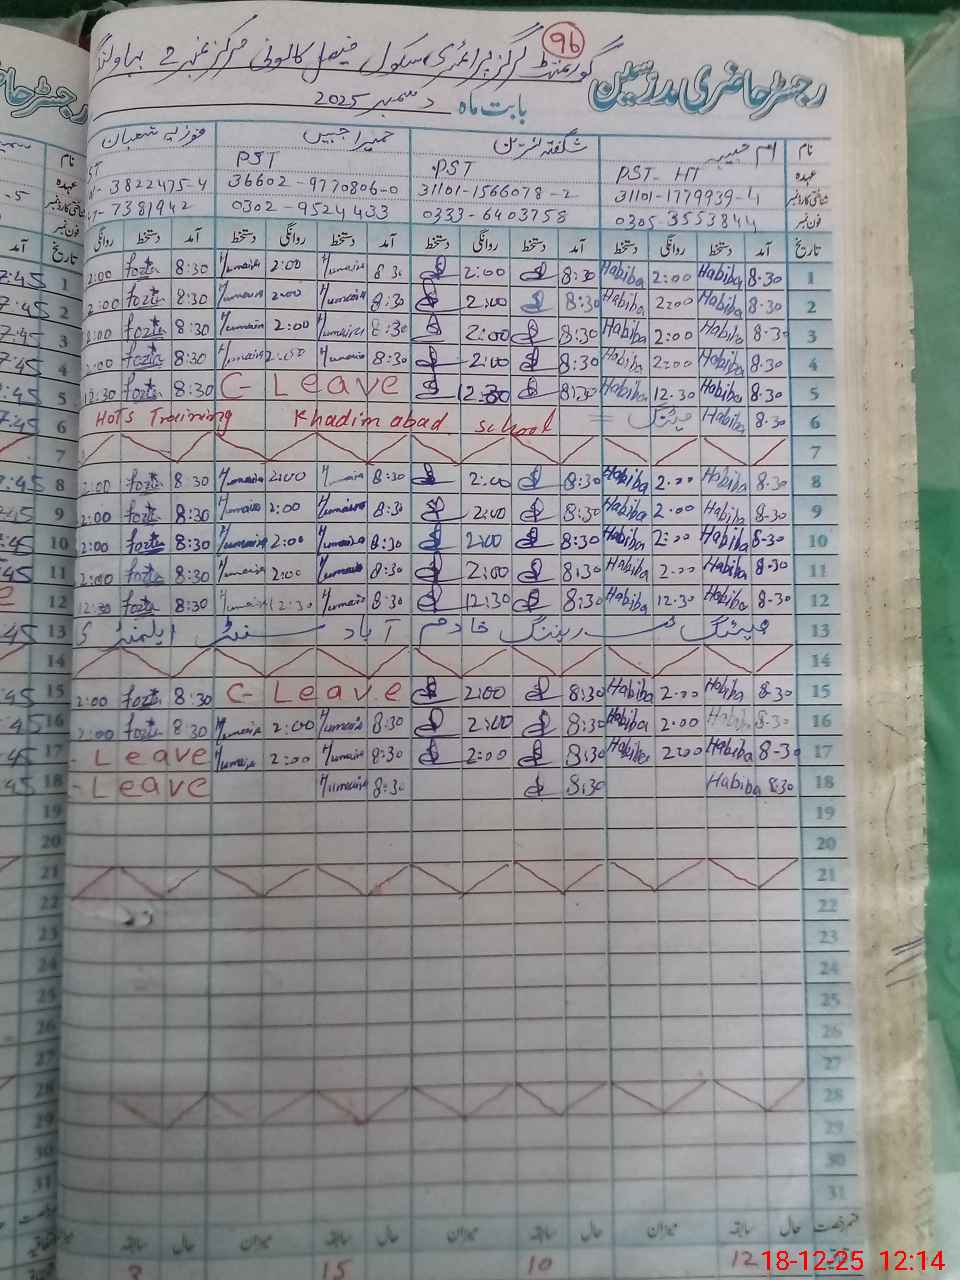 96
رجسٹر حاضری مدرسین
گورنمنٹ گرلز پرائمری سکول فیصل کالونی مرکز نمبر 2
بابت ماہ دسمبر 2025
نام ام حبیبہ شگفتہ نسرین حمیرا جبیں فوزیہ شعبان
عہدہ PST- HT PST PST ST
شناختی کارڈ نمبر 31101-1779939-4 31101-1566078-2 36602-9770806-0 3822475-4
فون نمبر 0305-3553844 0333-6403758 0302-9524433 7381942
تاریخ آمد دستخط روانگی دستخط آمد دستخط روانگی دستخط آمد دستخط روانگی دستخط آمد دستخط روانگی
1 8-30 Habiba 2:00 Habiba 8:30 2:00 8:30 Humaira 2:00 Humaira 8:30 fozia 2:00
2 8-30 Habiba 2:00 Habiba 8:30 2:00 8:30 Humaira 2:00 Humaira 8:30 fozia 2:00
3 8-30 Habiba 2:00 Habiba 8:30 2:00 8:30 Humaira 2:00 Humaira 8:30 fozia 2:00
4 8-30 Habiba 2:00 Habiba 8:30 2:00 8:30 Humaira 2:00 Humaira 8:30 fozia 2:00
5 8-30 Habiba 12.30 Habiba 8:30 12:30 C- Leave 8:30 fozia 12:30
6 8-30 Habiba میٹنگ = HoTs Training Khadim abad school
7
8 8-30 Habiba 2:00 Habiba 8:30 2:00 8:30 Humaira 2:00 Humaira 8:30 fozia 2:00
9 8-30 Habiba 2:00 Habiba 8:30 2:00 8:30 Humaira 2:00 Humaira 8:30 fozia 2:00
10 8-30 Habiba 2:00 Habiba 8:30 2:00 8:30 Humaira 2:00 Humaira 8:30 fozia 2:00
11 8-30 Habiba 2:00 Habiba 8:30 2:00 8:30 Humaira 2:00 Humaira 8:30 fozia 2:00
12 8-30 Habiba 12.30 Habiba 8:30 12:30 8:30 Humaira 12:30 Humaira 8:30 fozia 12:30
13 میٹنگ ٹریننگ خادم آباد سنٹر ایلمنٹری
14
15 8-30 Habiba 2:00 Habiba 8:30 2:00 C- Leave 8:30 fozia 2:00
16 8-30 Habiba 2:00 Habiba 8:30 2:00 8:30 Humaira 2:00 Humaira 8:30 fozia 2:00
17 8-30 Habiba 2:00 Habiba 8:30 2:00 8:30 Humaira 2:00 Humaira - Leave
18 8:30 Habiba 8:30 8:30 Humaira - Leave
19
20
21
22
23
24
25
26
27
28
29
30
31
حال سابقہ میزان حال سابقہ میزان حال سابقہ
12 10 15
18-12-25 12:14